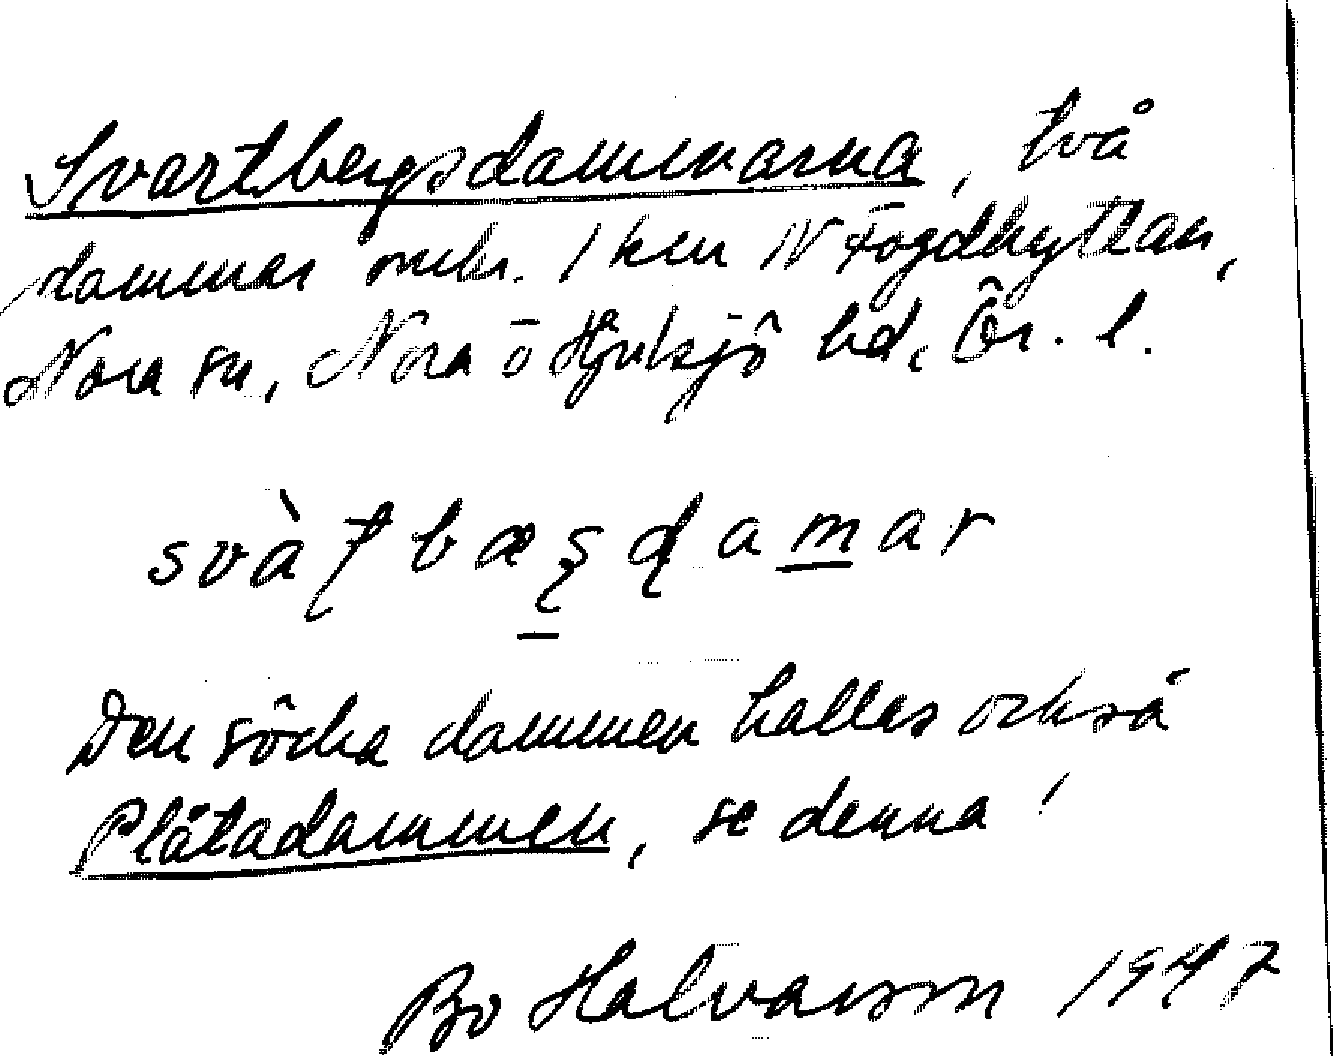 Svartbergsdammarna, två
dammar omkr. 1 km N Fogdhyttan,
Nora sn, Nora o Hjulsjö hd, Ör. l.
svàʈbæʂɖamar
Den södra dammen kallas också
Plåtadammen, se denna!
Bo Halvarson 1947